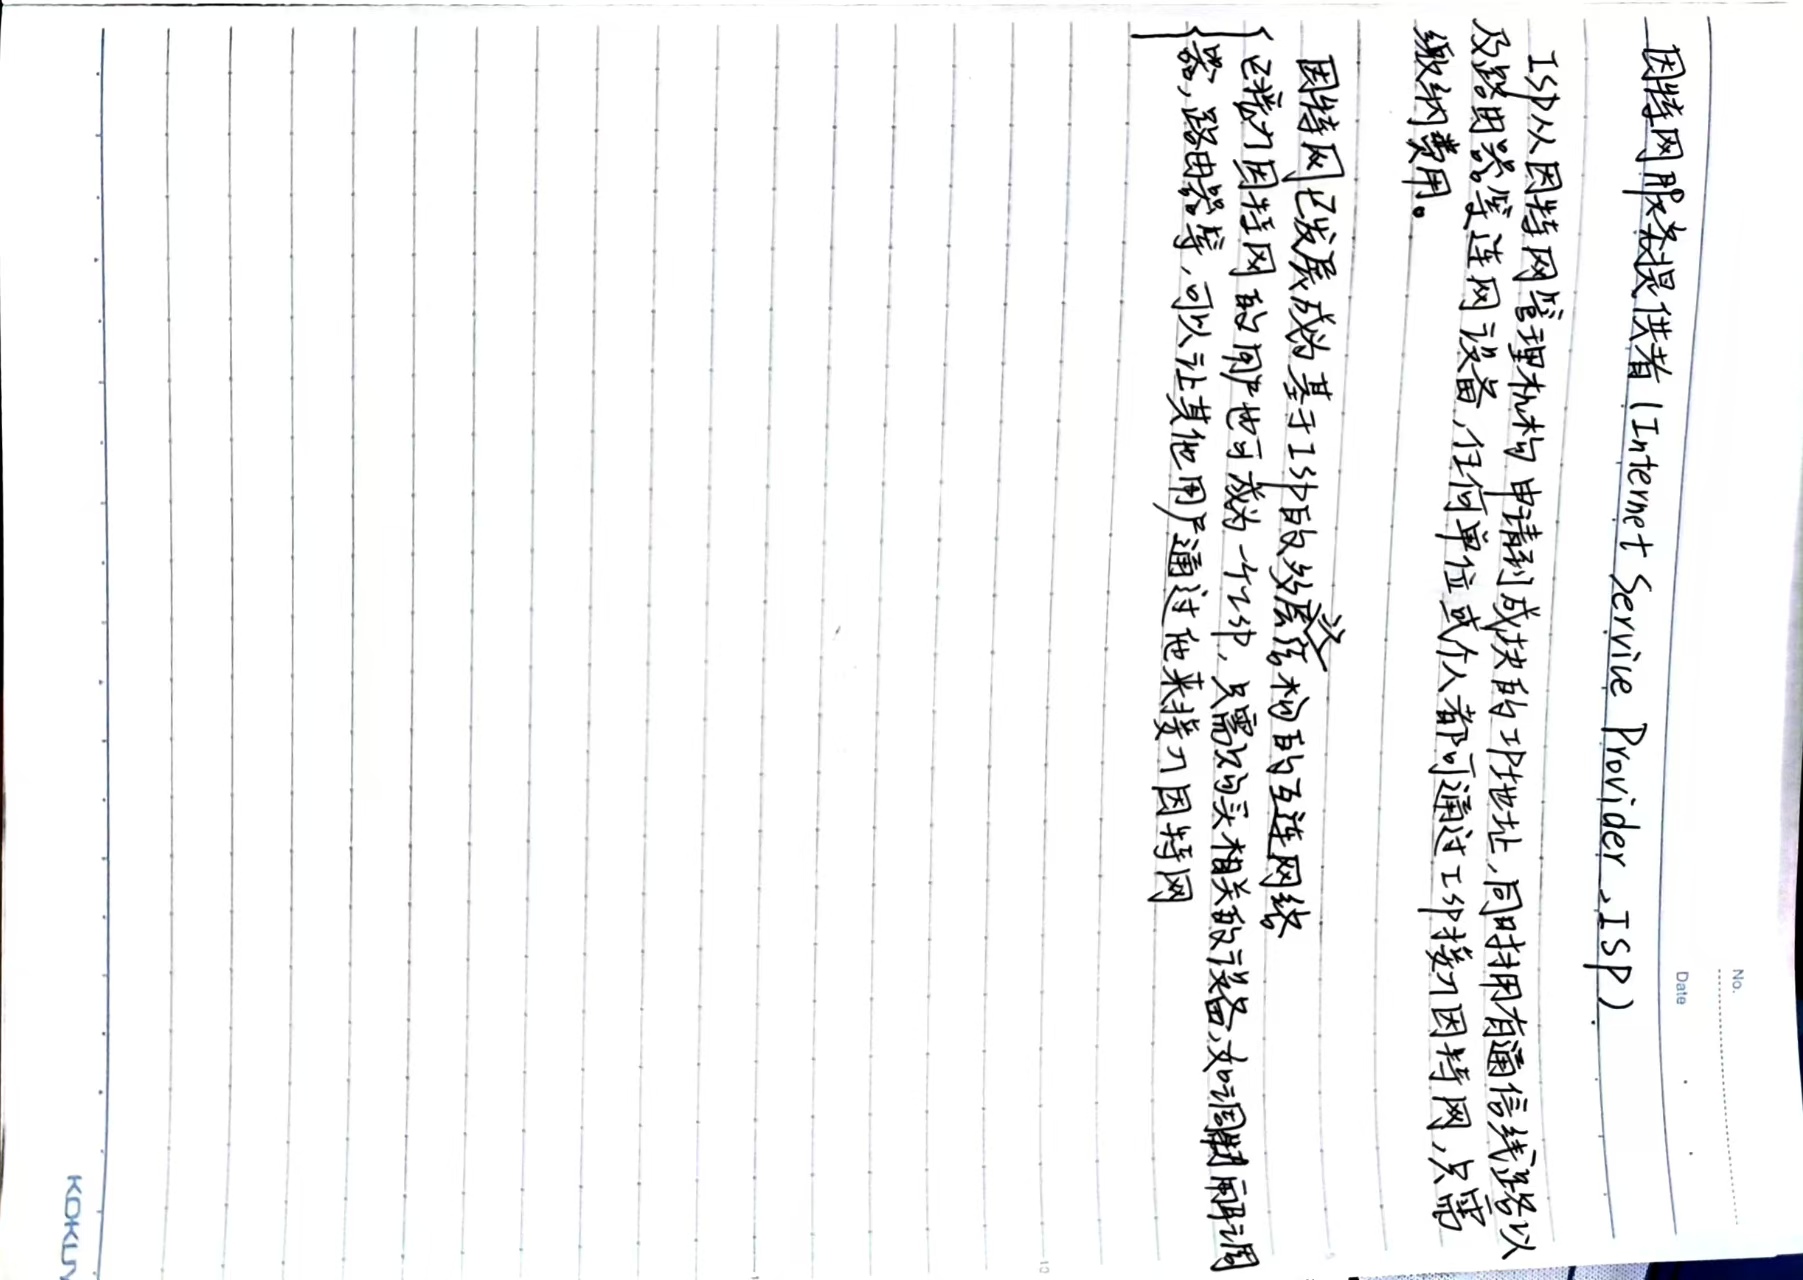 No.
Date
因特网服务提供者(Internet Service Provider,ISP)
ISP从因特网管理机构申请到成块的IP地址,同时拥有通信线路以
及路由器等连网设备,任何单位或个人都可通过ISP接入因特网,只需
缴纳费用。
因特网已发展成为基于ISP的多层次结构的互连网络
已接入因特网的用户也可成为一个ISP,只需购买相关的设备,如调制解调
器,路由器等,可以让其他用户通过他来接入因特网
5
10
KOKUY